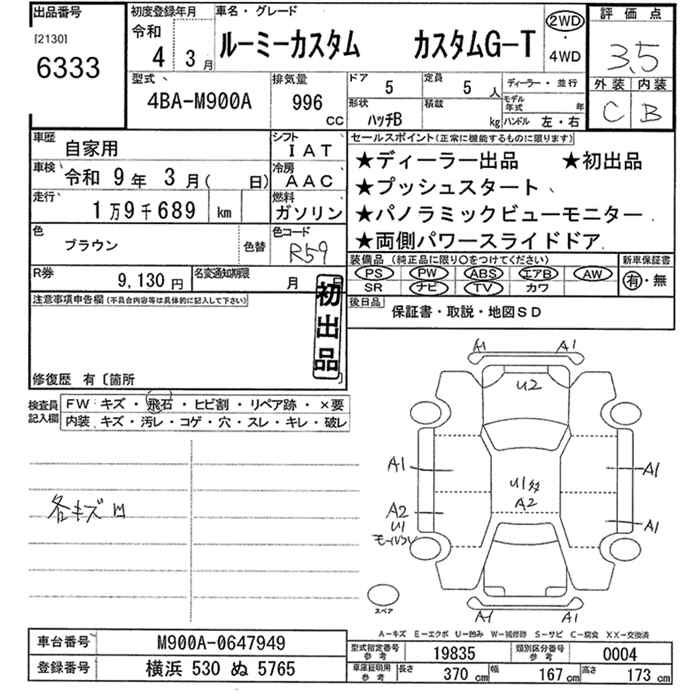 出品番号
[2130]
6333
初度登録年月
令和
4 3月
車名・グレード
ルーミーカスタム カスタムG-T
2WD
・
4WD
評価点
3.5
外装 内装
C B
型式
4BA-M900A
排気量
996
cc
ドア 5
定員 5人
形状 ハッチB
積載 kg
ディーラー・並行
モデル年式 年
ハンドル 左・右
車歴 自家用
シフト IAT
車検 令和9年3月( 日)
冷房 AAC
走行 1万9千689 km
燃料 ガソリン
色 ブラウン
色替
色コード R59
セールスポイント(正常に機能するものに限ります)
★ディーラー出品 ★初出品
★プッシュスタート
★パノラミックビューモニター
★両側パワースライドドア
装備品(純正品に限り○をつけてください)
PS PW ABS エアB AW
SR ナビ TV カワ
新車保証書
有・無
R券 9,130円
名変通知期限 月
初出品
後日品
保証書・取説・地図SD
注意事項申告欄(不具合内容等は具体的に記入して下さい)
修復歴 有〔箇所 〕
検査員記入欄
FW キズ・飛石・ヒビ割・リペア跡・×要
内装 キズ・汚レ・コゲ・穴・スレ・キレ・破レ
各キズ凹
A1 A1
U2
A1 A1
U1
A2
A2
U1
A1
A1 A1
スペア
A-キズ E-エクボ U-凹み W-補修跡 S-サビ C-腐食 XX-交換済
車台番号 M900A-0647949
登録番号 横浜 530 ぬ 5765
型式指定番号 参考 19835
類別区分番号 参考 0004
車庫証明用 参考 長さ 370 cm 幅 167 cm 高さ 173 cm